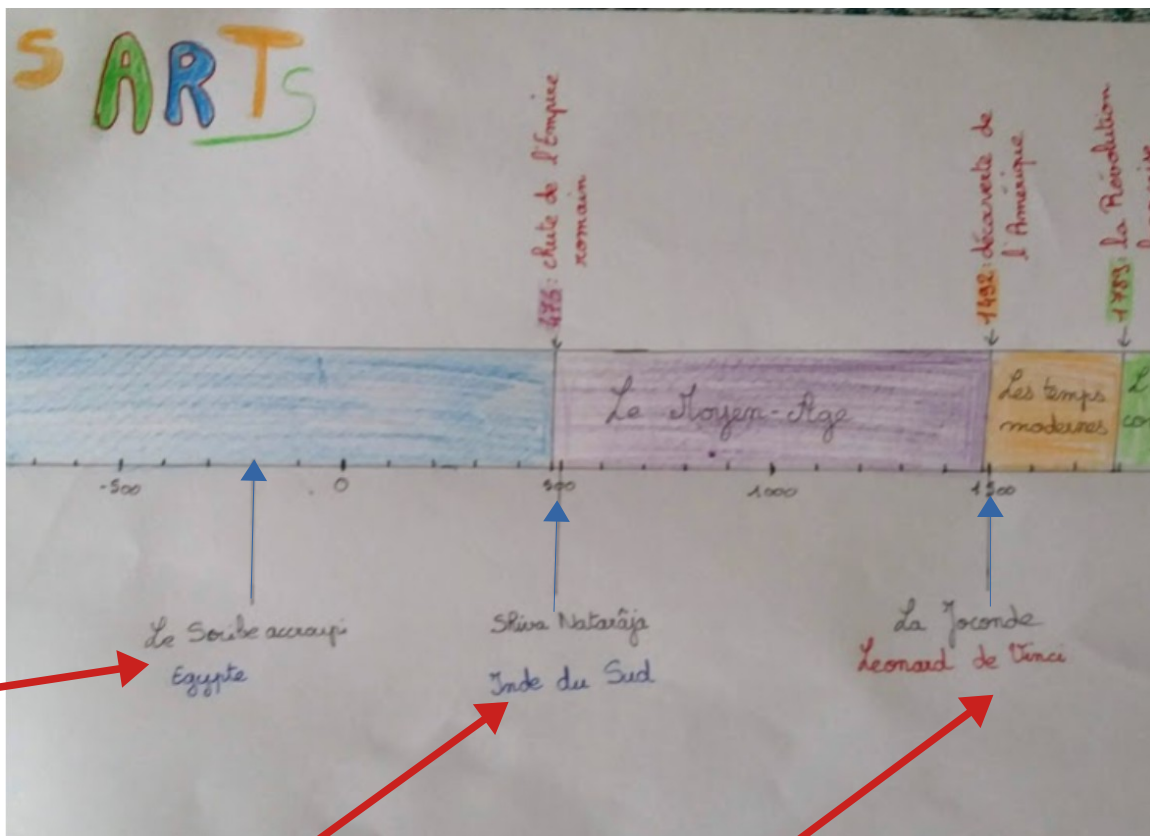 S ARTS
476: chute de l'Empire
romain
1492: découverte de
l'Amérique
1789: la Révolution
Le Moyen-Age
Les temps
modernes
L'
con
-500 0 500 1000 1500
Le Scribe accroupi
Egypte
Shiva Natarâja
Inde du Sud
La Joconde
Leonard de Vinci